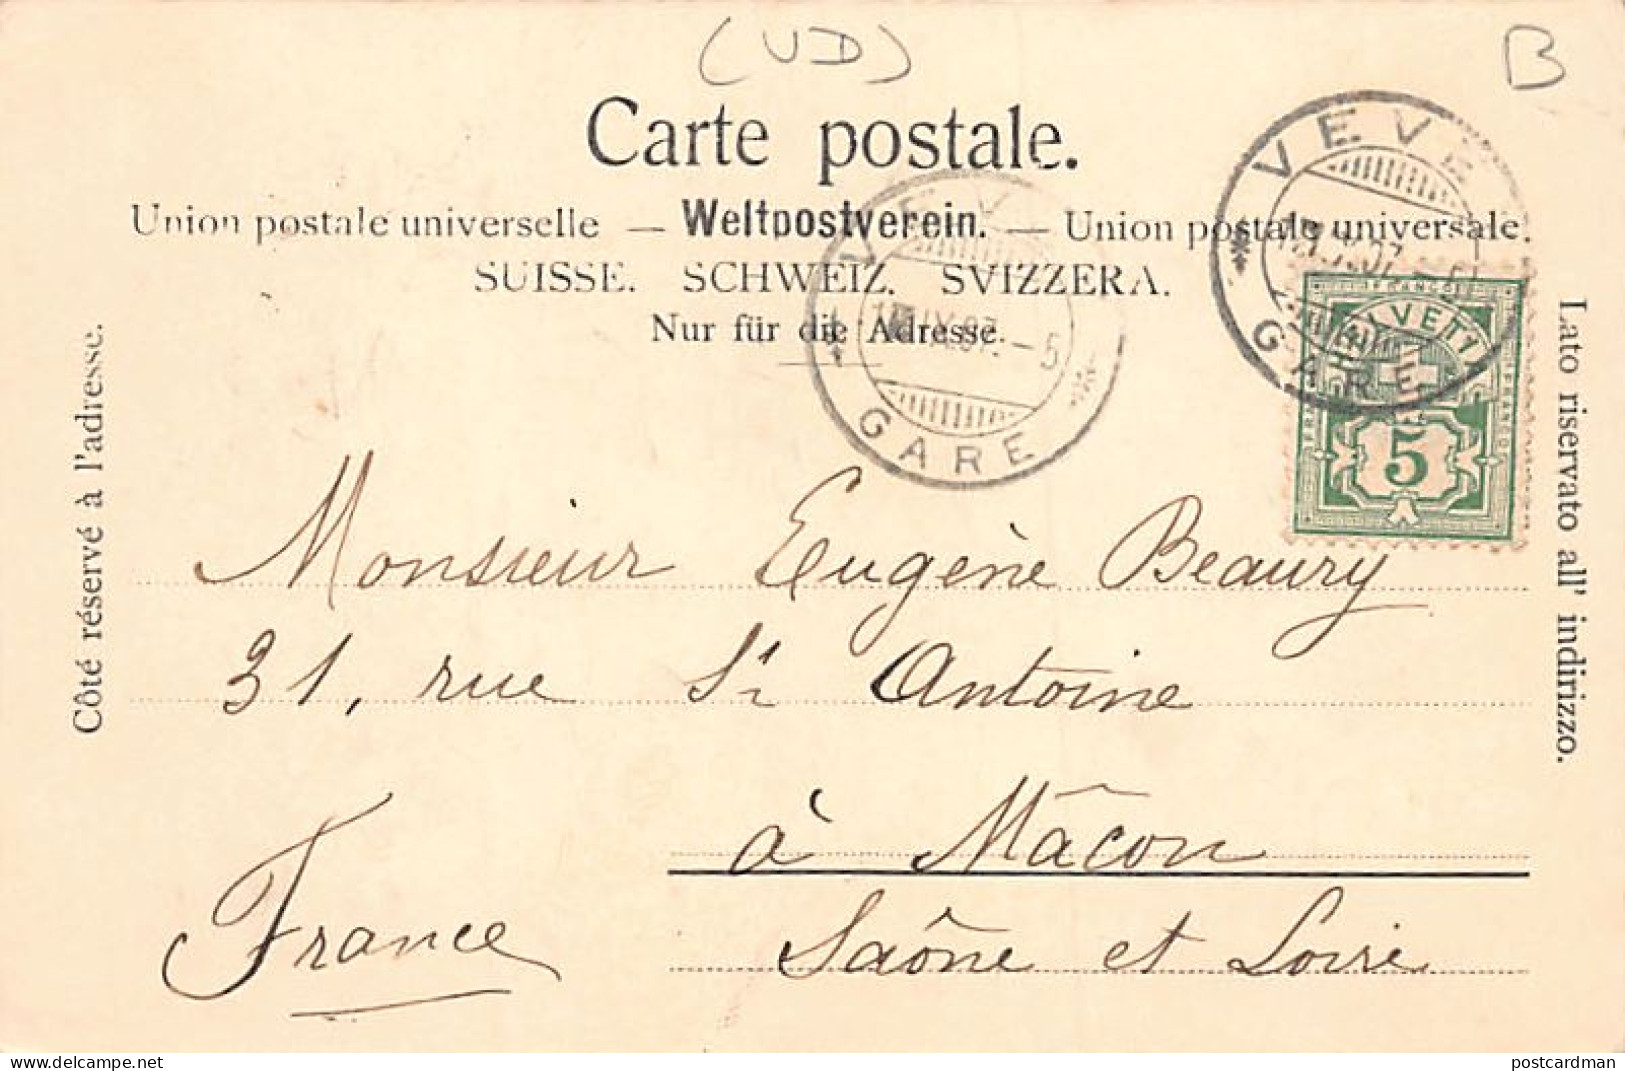 (VD)
B
Carte postale.
Union postale universelle — Weltpostverein. — Union postale universale.
SUISSE. SCHWEIZ. SVIZZERA.
Nur für die Adresse.
Côté réservé à l'adresse.
Lato riservato all' indirizzo.
VEVE
GARE
VEV
GARE
5
FRANCO
HELVETI
5
Monsieur Eugène Beaury
31, rue St Antoine
à Mâcon
France
Saône et Loire
www.delcampe.net
postcardman